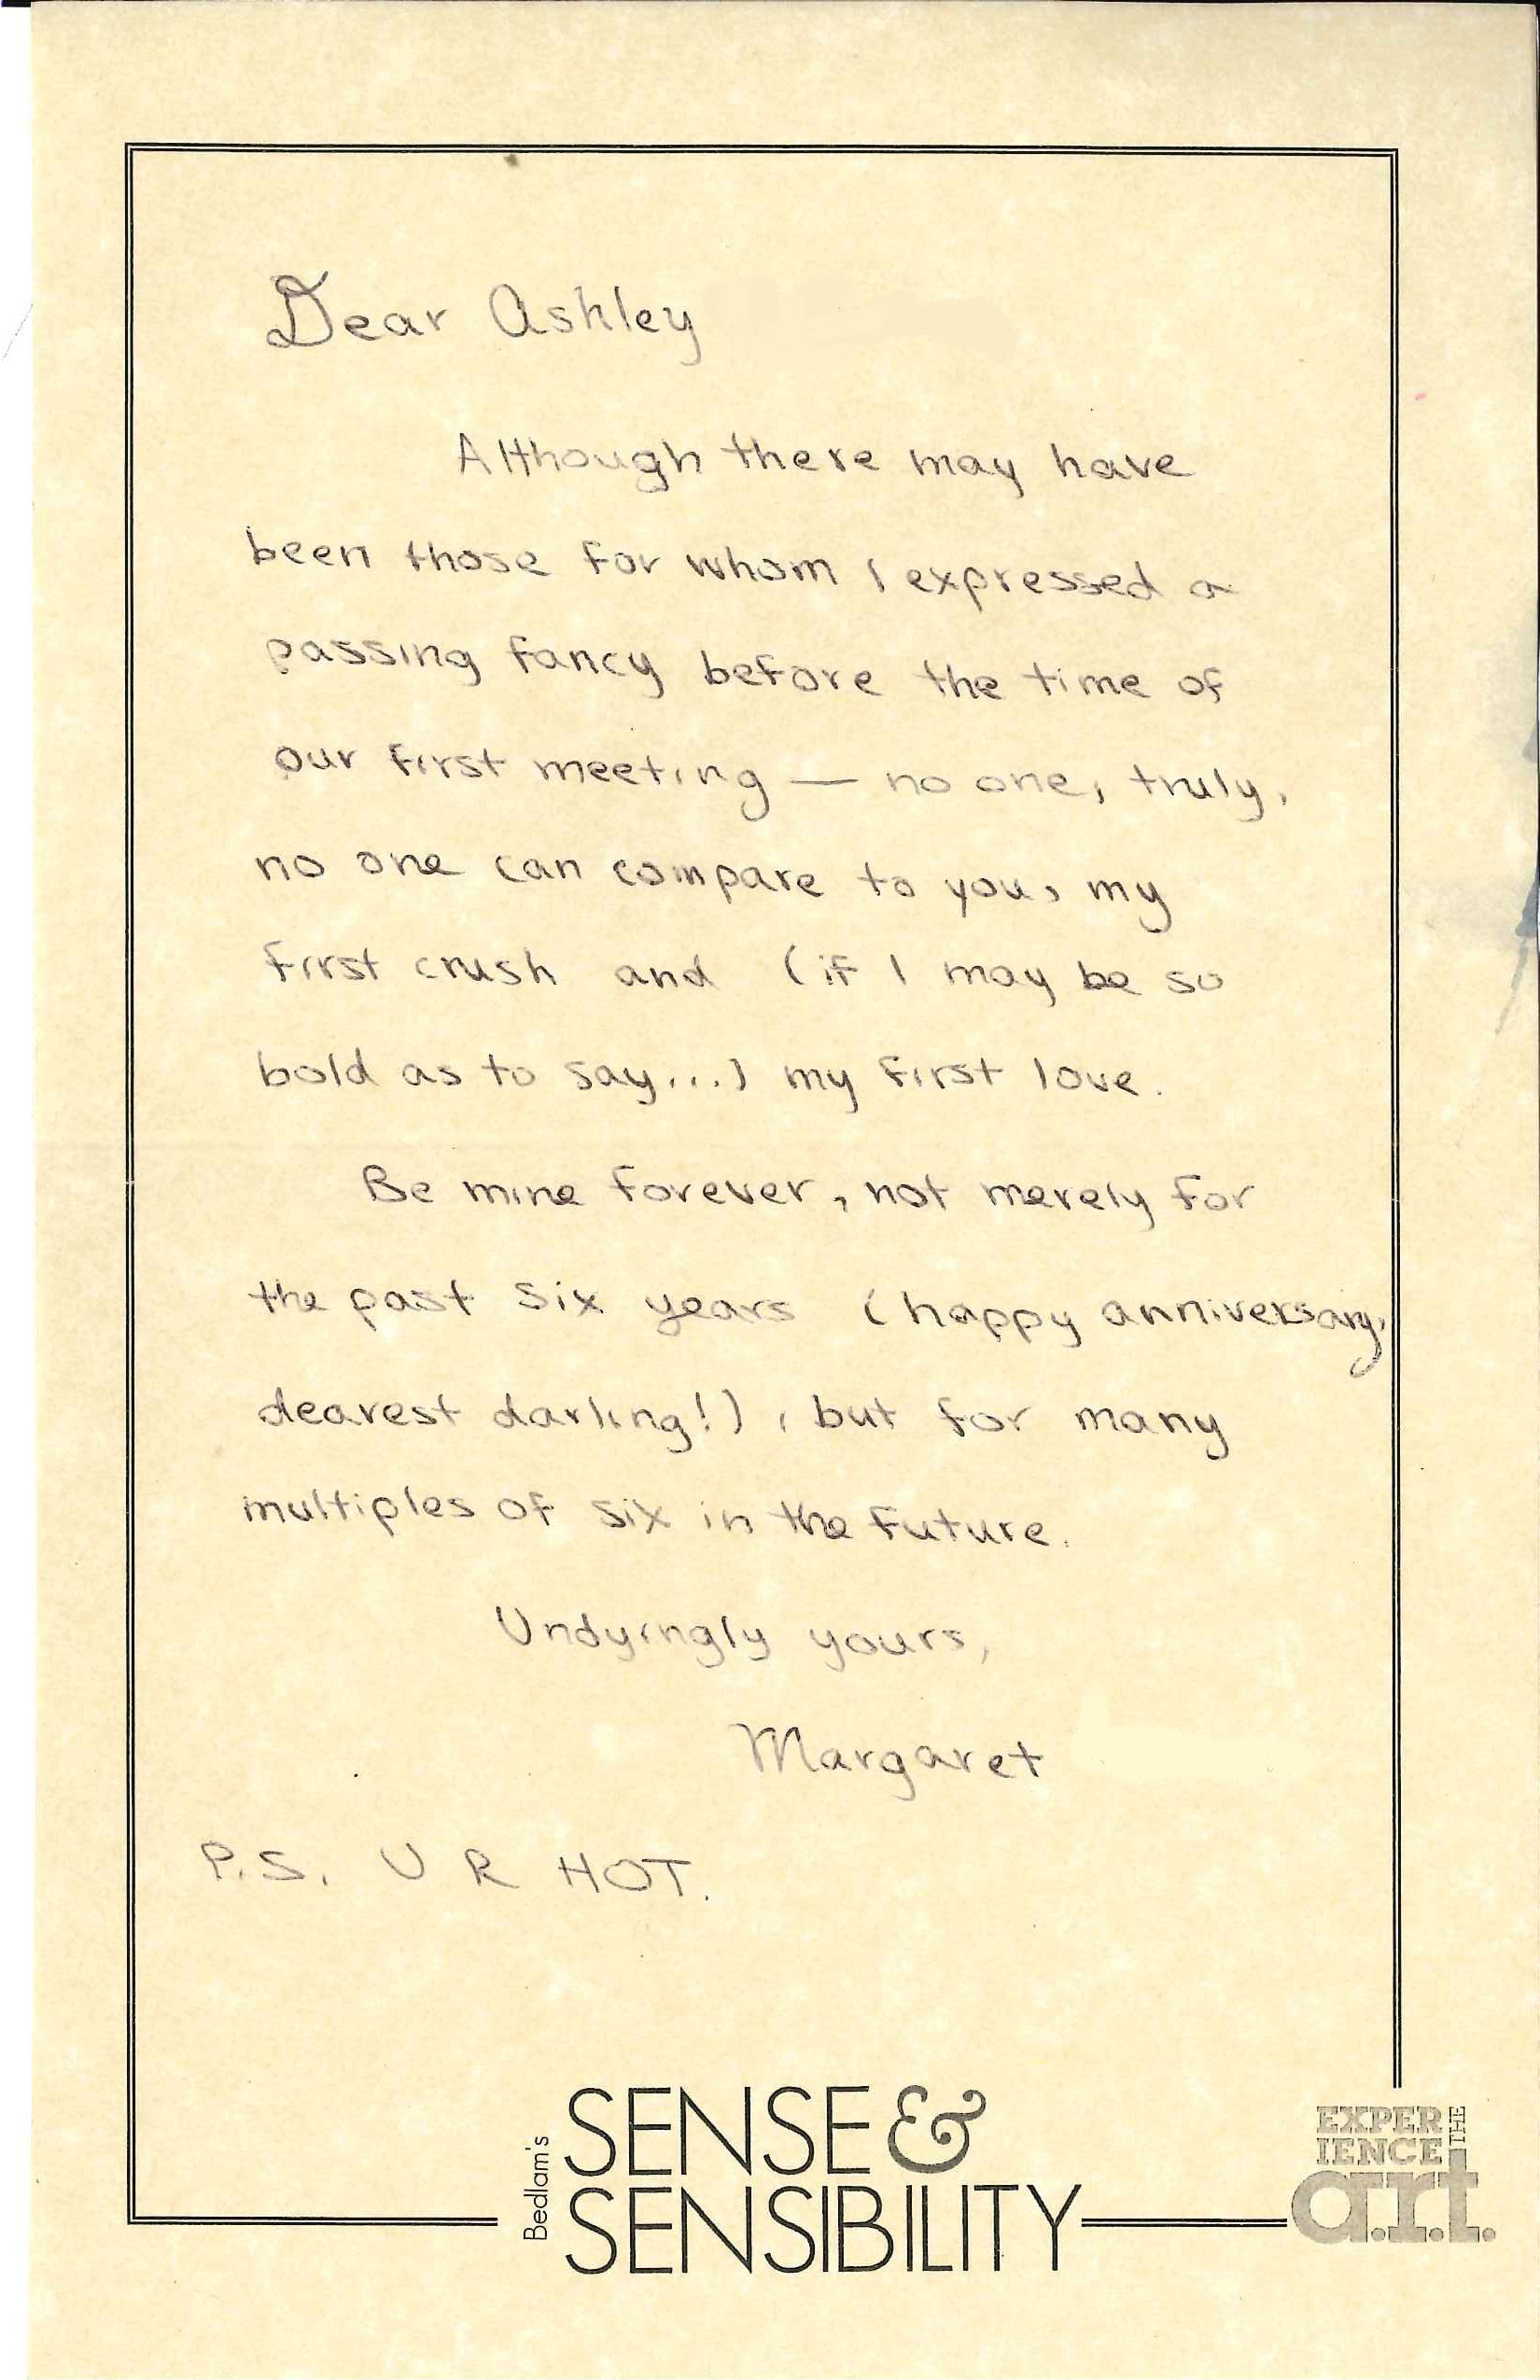 Dear Ashley
Although there may have
been those for whom I expressed a
passing fancy before the time of
our first meeting — no one, truly,
no one can compare to you, my
first crush and (if I may be so
bold as to say...) my first love.
Be mine forever, not merely for
the past six years (happy anniversary,
dearest darling!), but for many
multiples of six in the future.
Undyingly yours,
Margaret
P.S. U R HOT.
Bedlam's
SENSE &
SENSIBILITY
EXPER
IENCE THE
a.r.t.